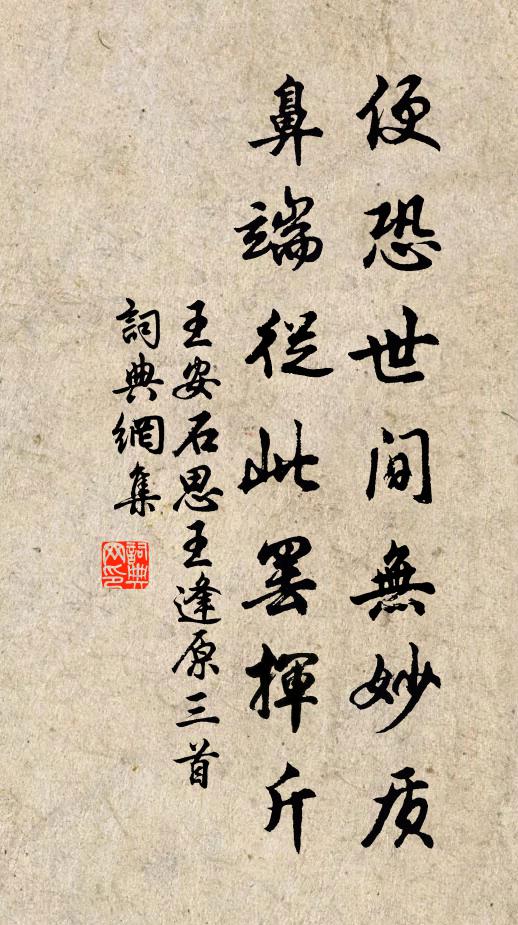 便恐世间無妙质
鼻端從此罢揮斤
王安石思王逢原三首
詞典網集
詞典网印